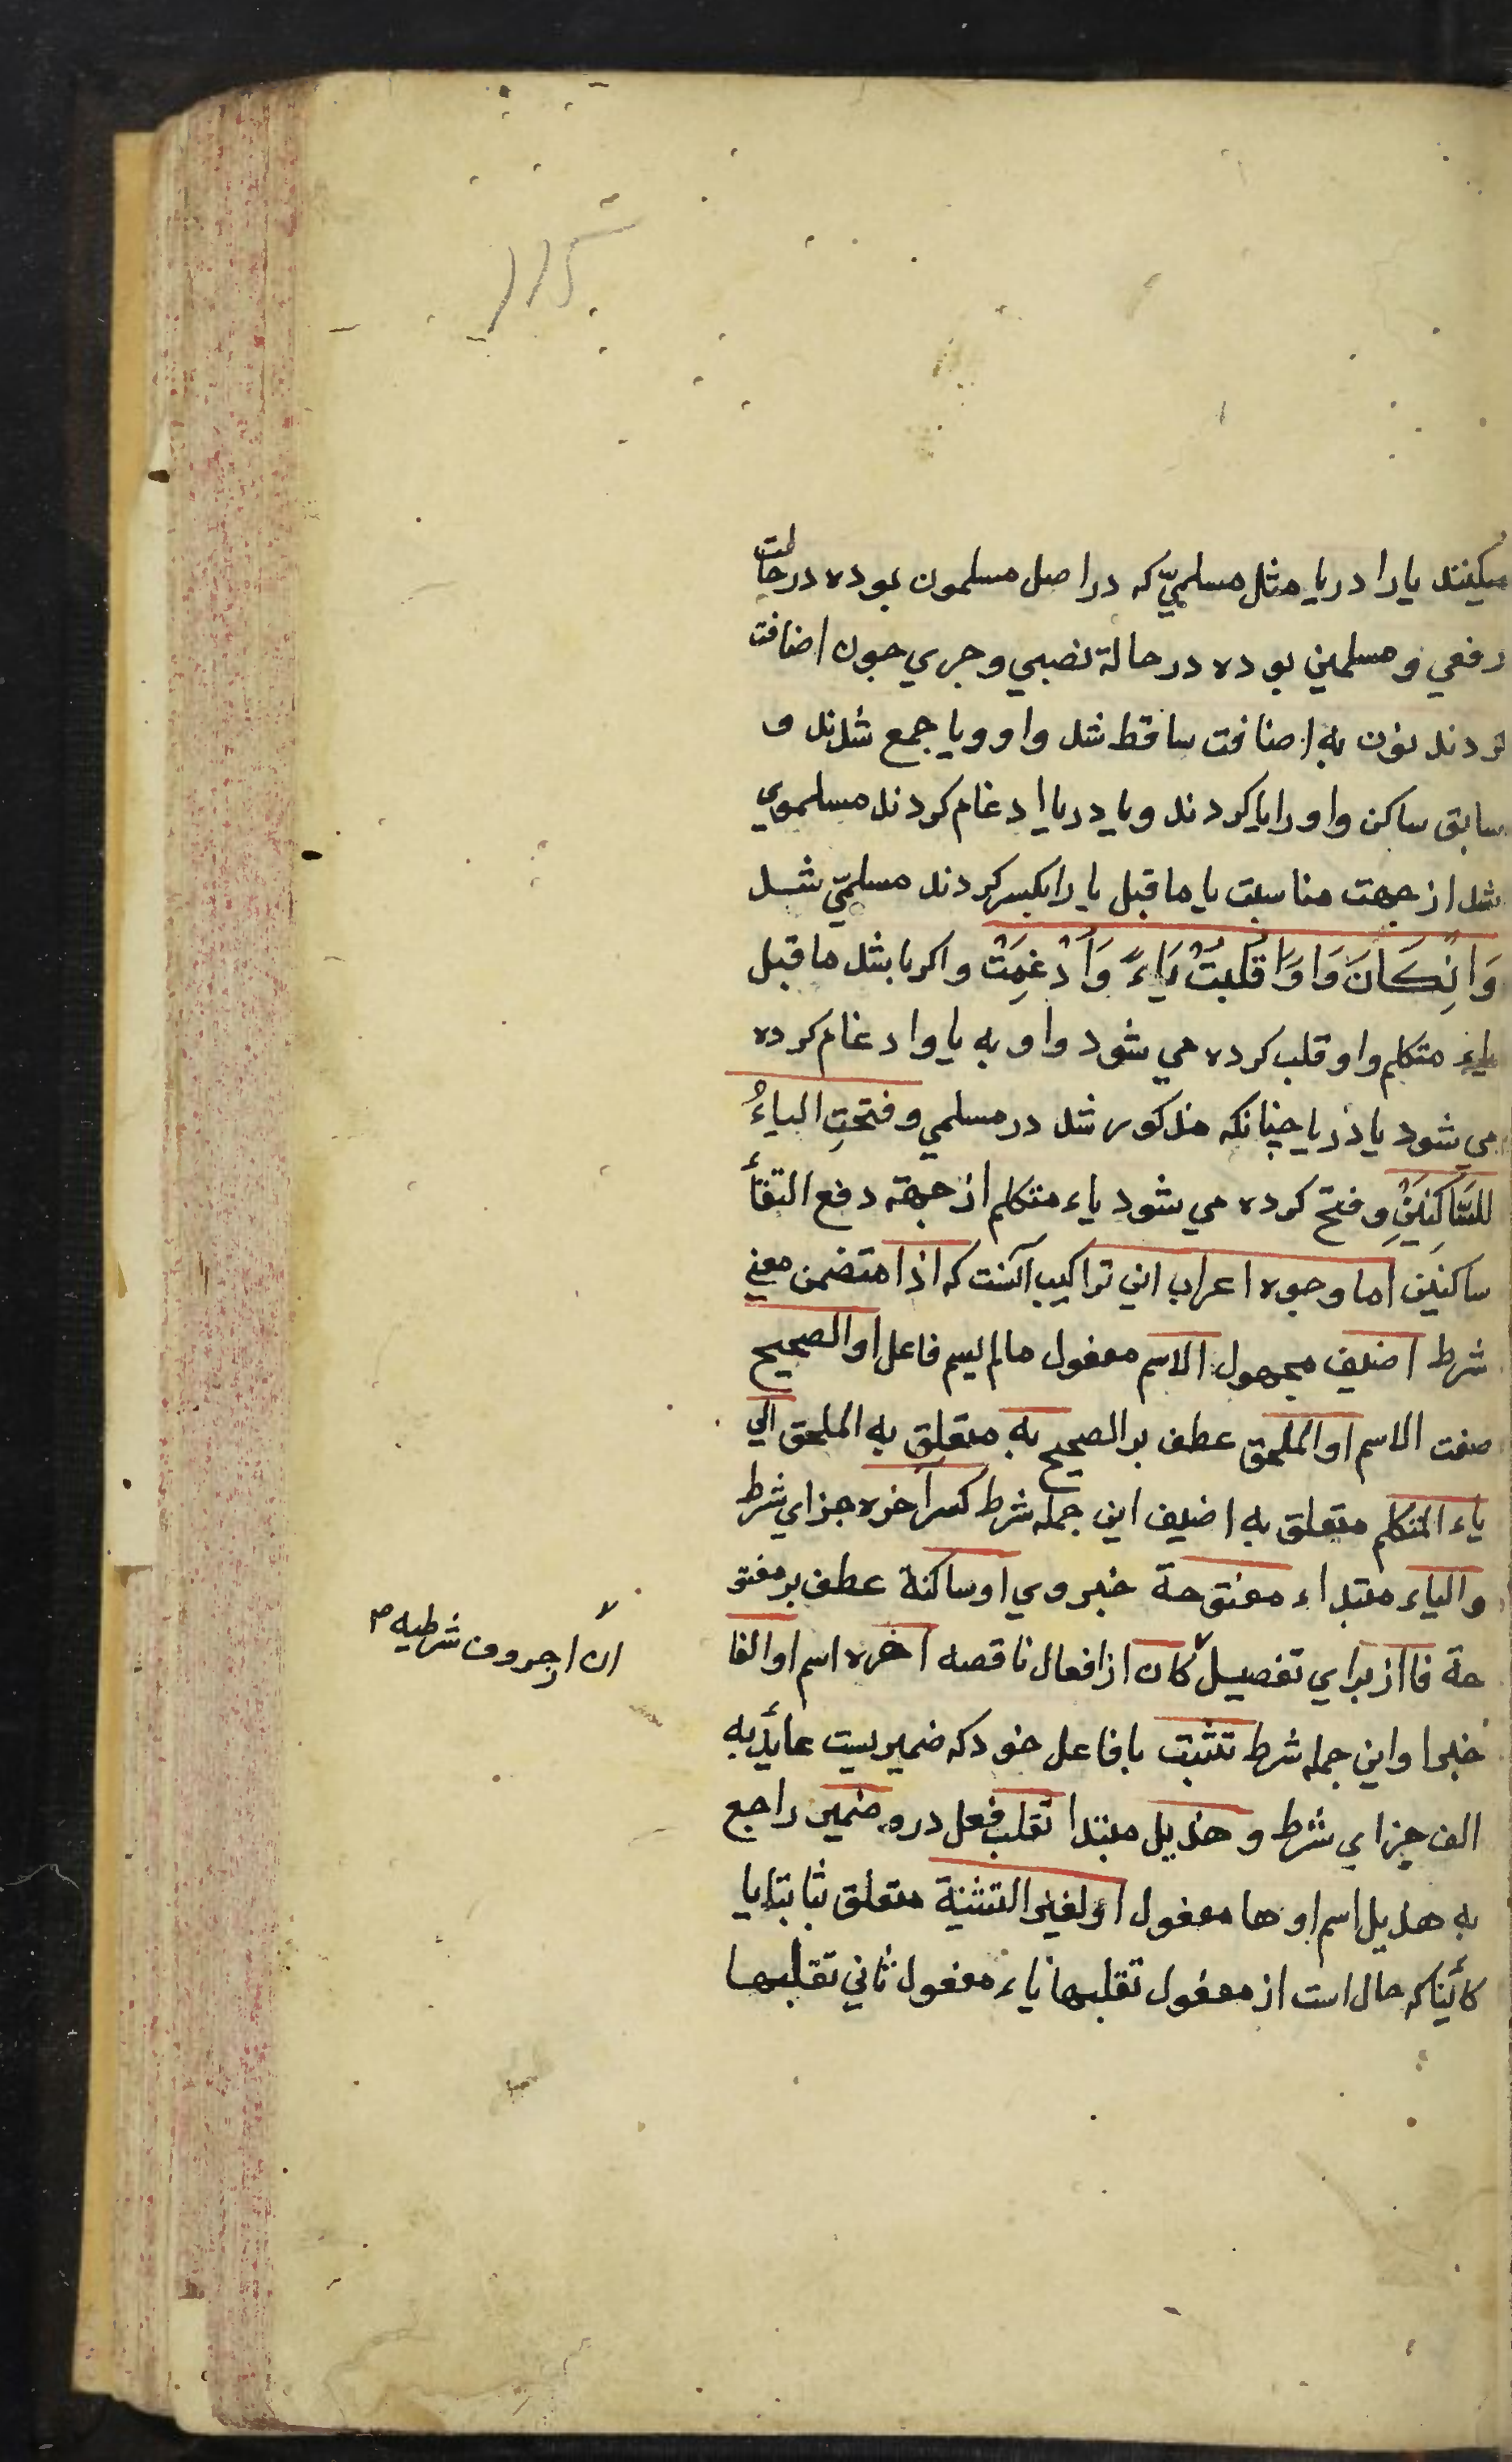 ۱۱۵
میکنند یا را در یا مثل مسلميّ که در اصل مسلمون بوده در حالت
رفعي و مسلمين بوده در حالة نصبي و جري جون اضافت
کردند نون به اضافت ساقط شد واو و یا جمع شدند و
سابق ساکن واو را یا کردند و یا در یا ادغام کردند مسلموي
شد از جهت مناسبت یا ما قبل یا را بکسر کردند مسلميّ شد
وَانِكَانَ وَاوًا قُلِبَتْ يَاءً وَاُدْغِمَتْ واکر باشد ما قبل
یاء متکلم واو قلب کرده مي شود واو به یا و ادغام کرده
مي شود یا در یا چنانکه مذکور شد در مسلمي وفتحتِ الياءُ
للسَّاكِنَيْنِ و فتح کرده مي شود یاء متکلم از جهة دفع التقأ
ساکنین اما وجوه اعراب این تراکیب آنست که اذا متضمن معني
شرط اضيف مجهول الاسم مفعول مالم یسم فاعل او الصحيح
صفت الاسم او الملحق عطف بر الصحيح به متعلق به الملحق الي
ياء المتكلم متعلق به اضيف این جمله شرط كسر آخره جزاي شرط
والياء مبتداء مفتوحة خبر وي او ساكنة عطف بر مفتو
حة فا از براي تفصيل كان از افعال ناقصه آخره اسم او الفا
ان از حروف شرطیه ۳
خبر او این جمله شرط تثبت با فاعل خود که ضمیریست عاید به
الف جزاي شرط و هذيل مبتدا تقلب فعل درو ضمير راجع
به هذيل اسم او ها مفعول او لغير التثنية متعلق ثابتا یا
کائنا که حال است از مفعول تقلبها ياء مفعول ثاني تقلبها